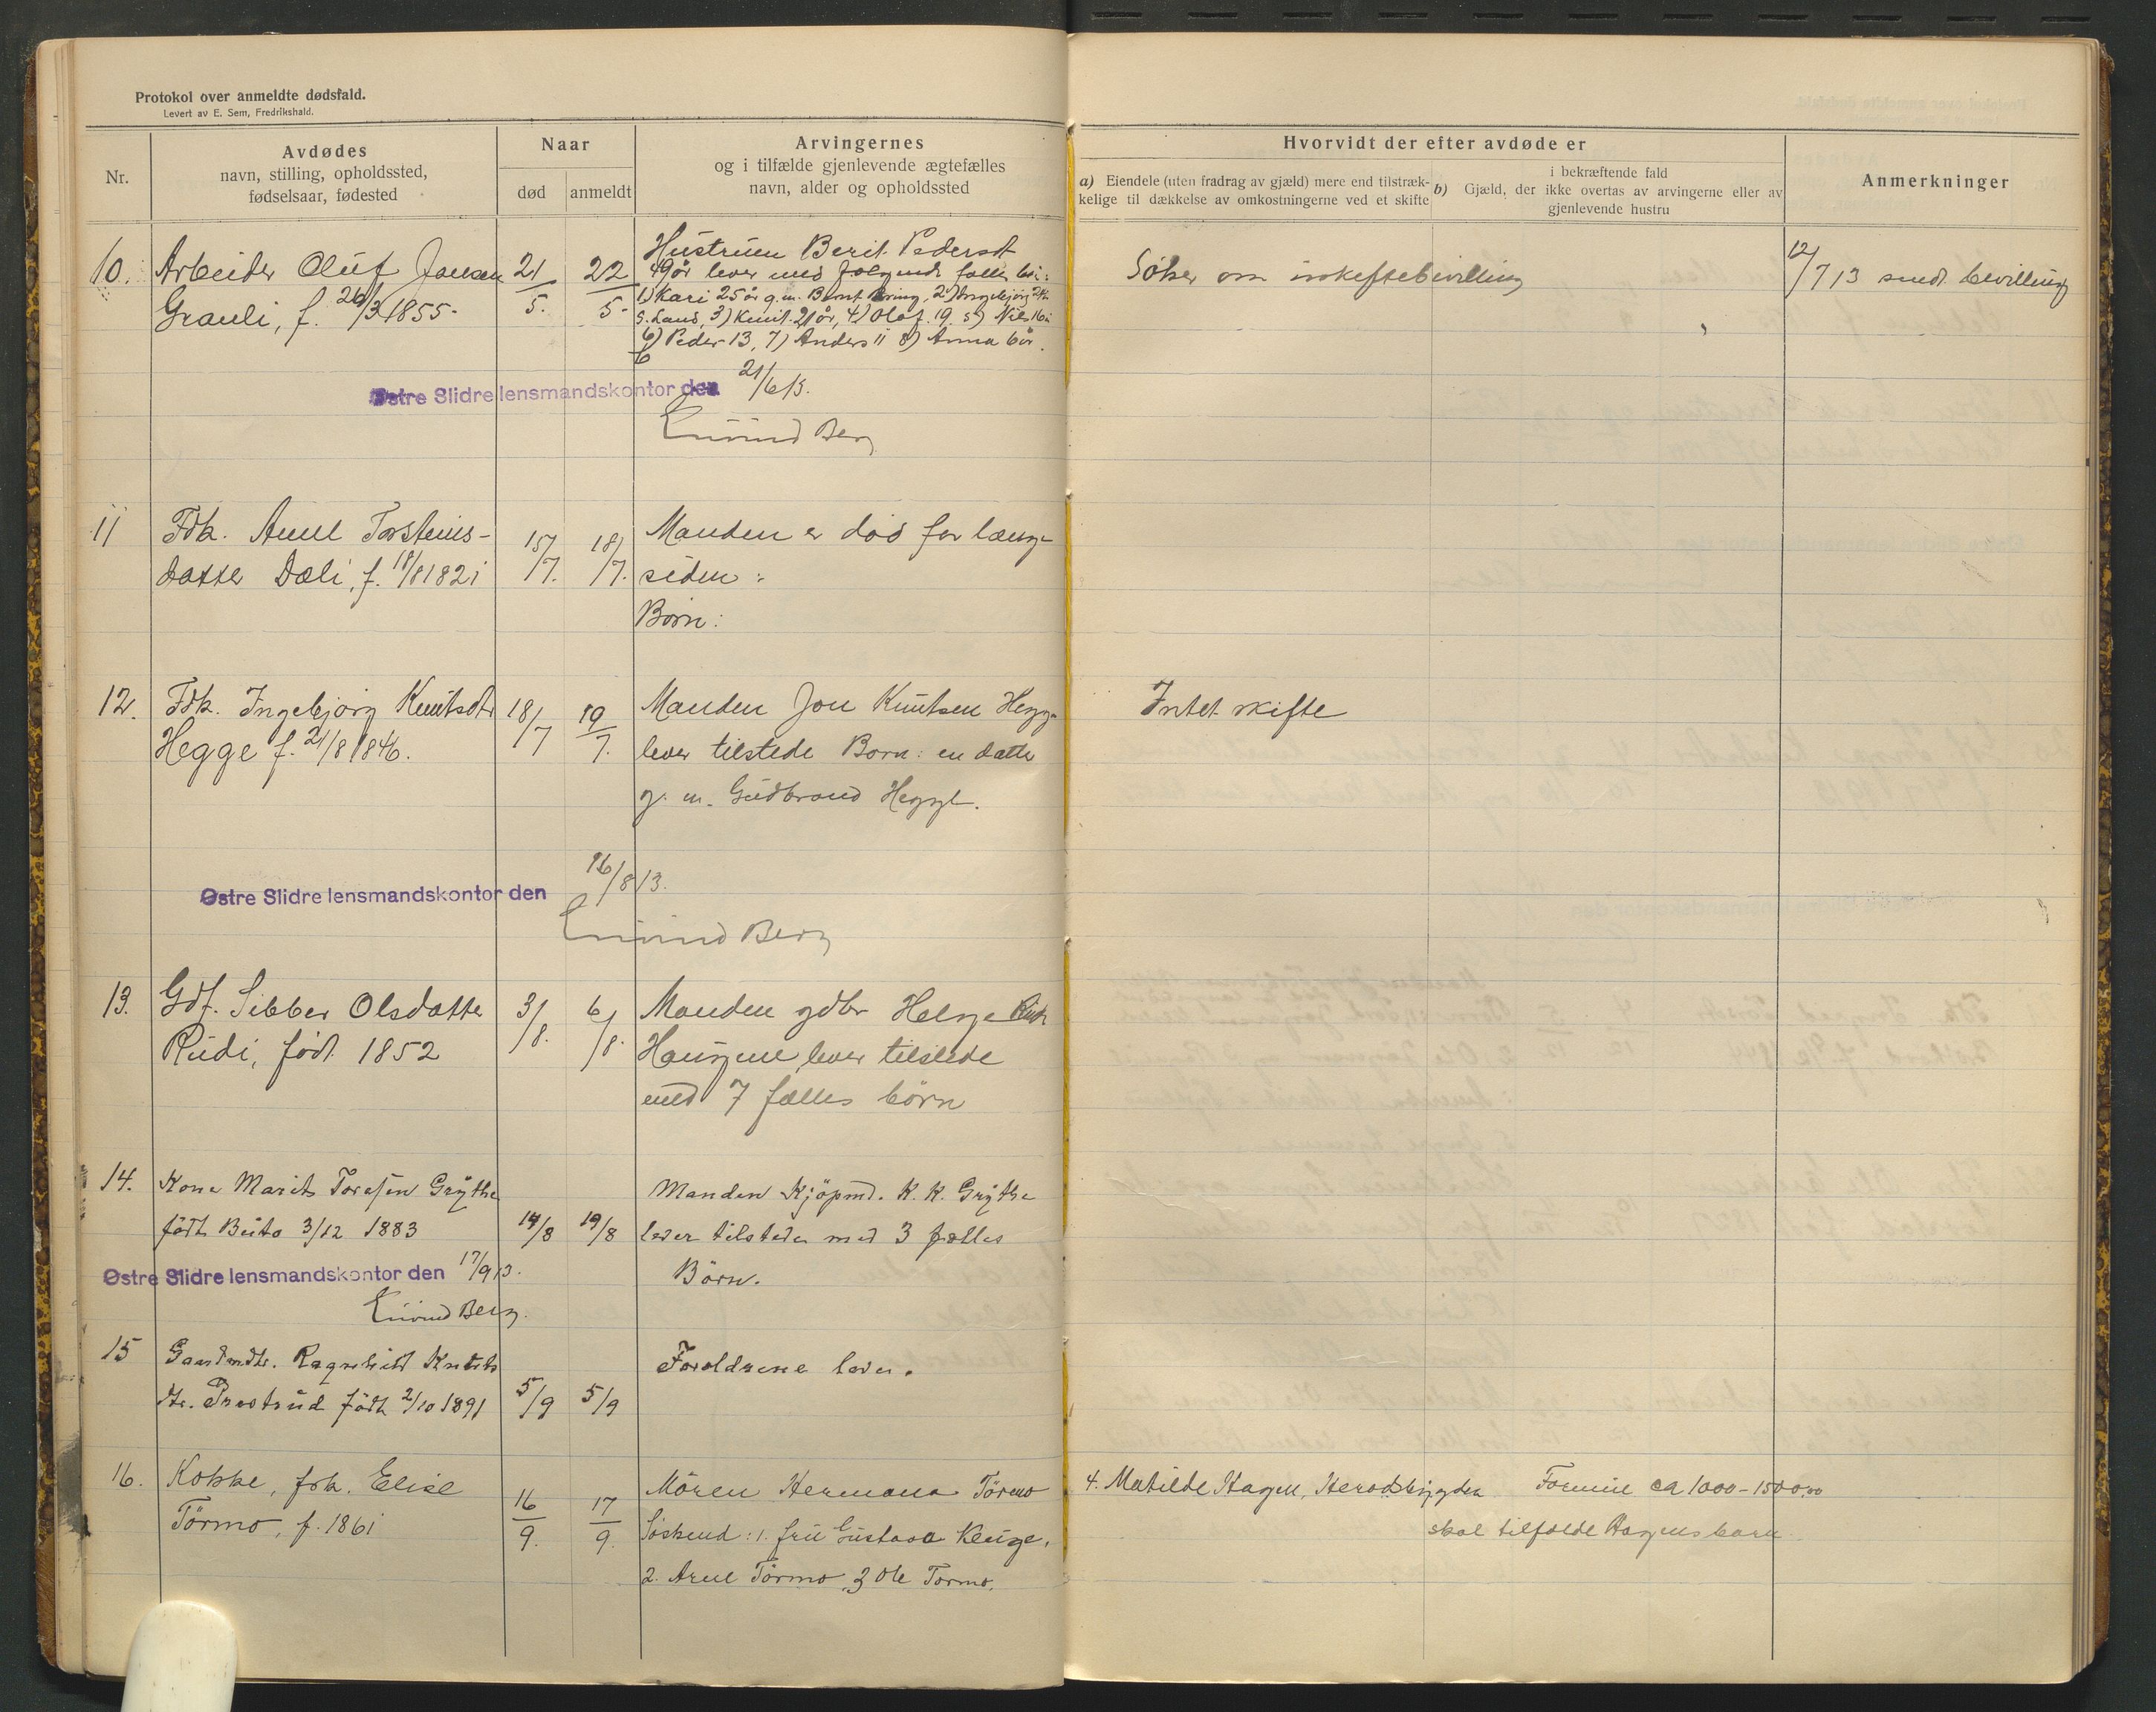 Protokol over anmeldte dødsfald.
Levert av E. Sem, Fredrikshald.
Nr.
Avdødes
navn, stilling, opholdssted,
fødselsaar, fødested
Naar
død
anmeldt
Arvingernes
og i tilfælde gjenlevende ægtefælles
navn, alder og opholdssted
Hvorvidt der efter avdøde er
a) Eiendele (uten fradrag av gjæld) mere end tilstræk-
kelige til dækkelse av omkostningerne ved et skifte
i bekræftende fald
b) Gjæld, der ikke overtas av arvingerne eller av
gjenlevende hustru
Anmerkninger
10. Arbeider Oluf Jansen
Grauli, f. 26/3 1855.
21/5.
22/5
Hustruen Berit Pedersdt
49 år lever med følgende
1) Kari 25 år g.m. Bernt 2) Ingebjörg
S. Land, 3) Knut 21 år, 4) Olaf 19 5) Nils 16
6) Peder 13, 7) Anders 11 8) Anna 6 år.
Søker om uskiftebevilling
12/7 13 sendt bevilling
Østre Slidre lensmandskontor den 21/6 13.
Eivind Berg
11 Fdk. Anne Torsteins-
datter Dæli, f. 18/8 1821
15/7.
18/7.
Manden er död for længe
siden:
Börn:
12. Fdk. Ingebjörg Knutsdtr
Hegge f. 21/8 1846.
18/7
19/7.
Manden Jon Knutsen Hegge
lever tilstede Born: en datter
g. m. Gudbrand Hegge.
Intet skifte
Østre Slidre lensmandskontor den 16/8 13.
Eivind Berg
13. Gdf. Sibber Olsdatter
Rudi, født 1852
3/8.
6/8.
Manden gdbr Helge
Haugene, lever tilstede
med 7 fælles børn
14. Kone Marit Toresen Grythe
födt Beito 3/12 1883
14/8
19/8
Manden Kjöpmd. K. K. Grythe
lever tilstede med 3 fælles
Börn.
Østre Slidre lensmandskontor den 17/9 13.
Eivind Berg.
15 Gaardmdtr. Ragnhild Knuts
dtr. Prestrud födt 2/10 1891
5/9
5/9
Foreldrene lever.
16. Kokke, frk. Elise
Törmo, f. 1861
16/9.
17/9.
Moren Hermana Törmo
Söskend: 1. fru Gustava Kluge,
2. Arne Törmo, 3 Ole Tormo,
4. Matilde Hagen, Herodsbygden
Formue ca 1000-1500.00
skal tilfalde Hagens barn.